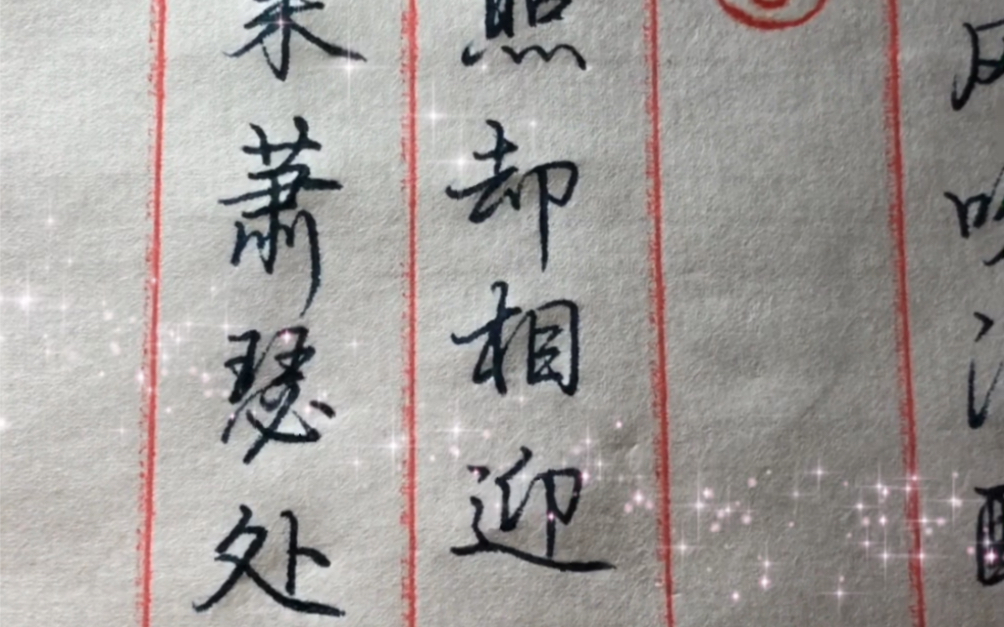 照却相迎
来萧瑟处